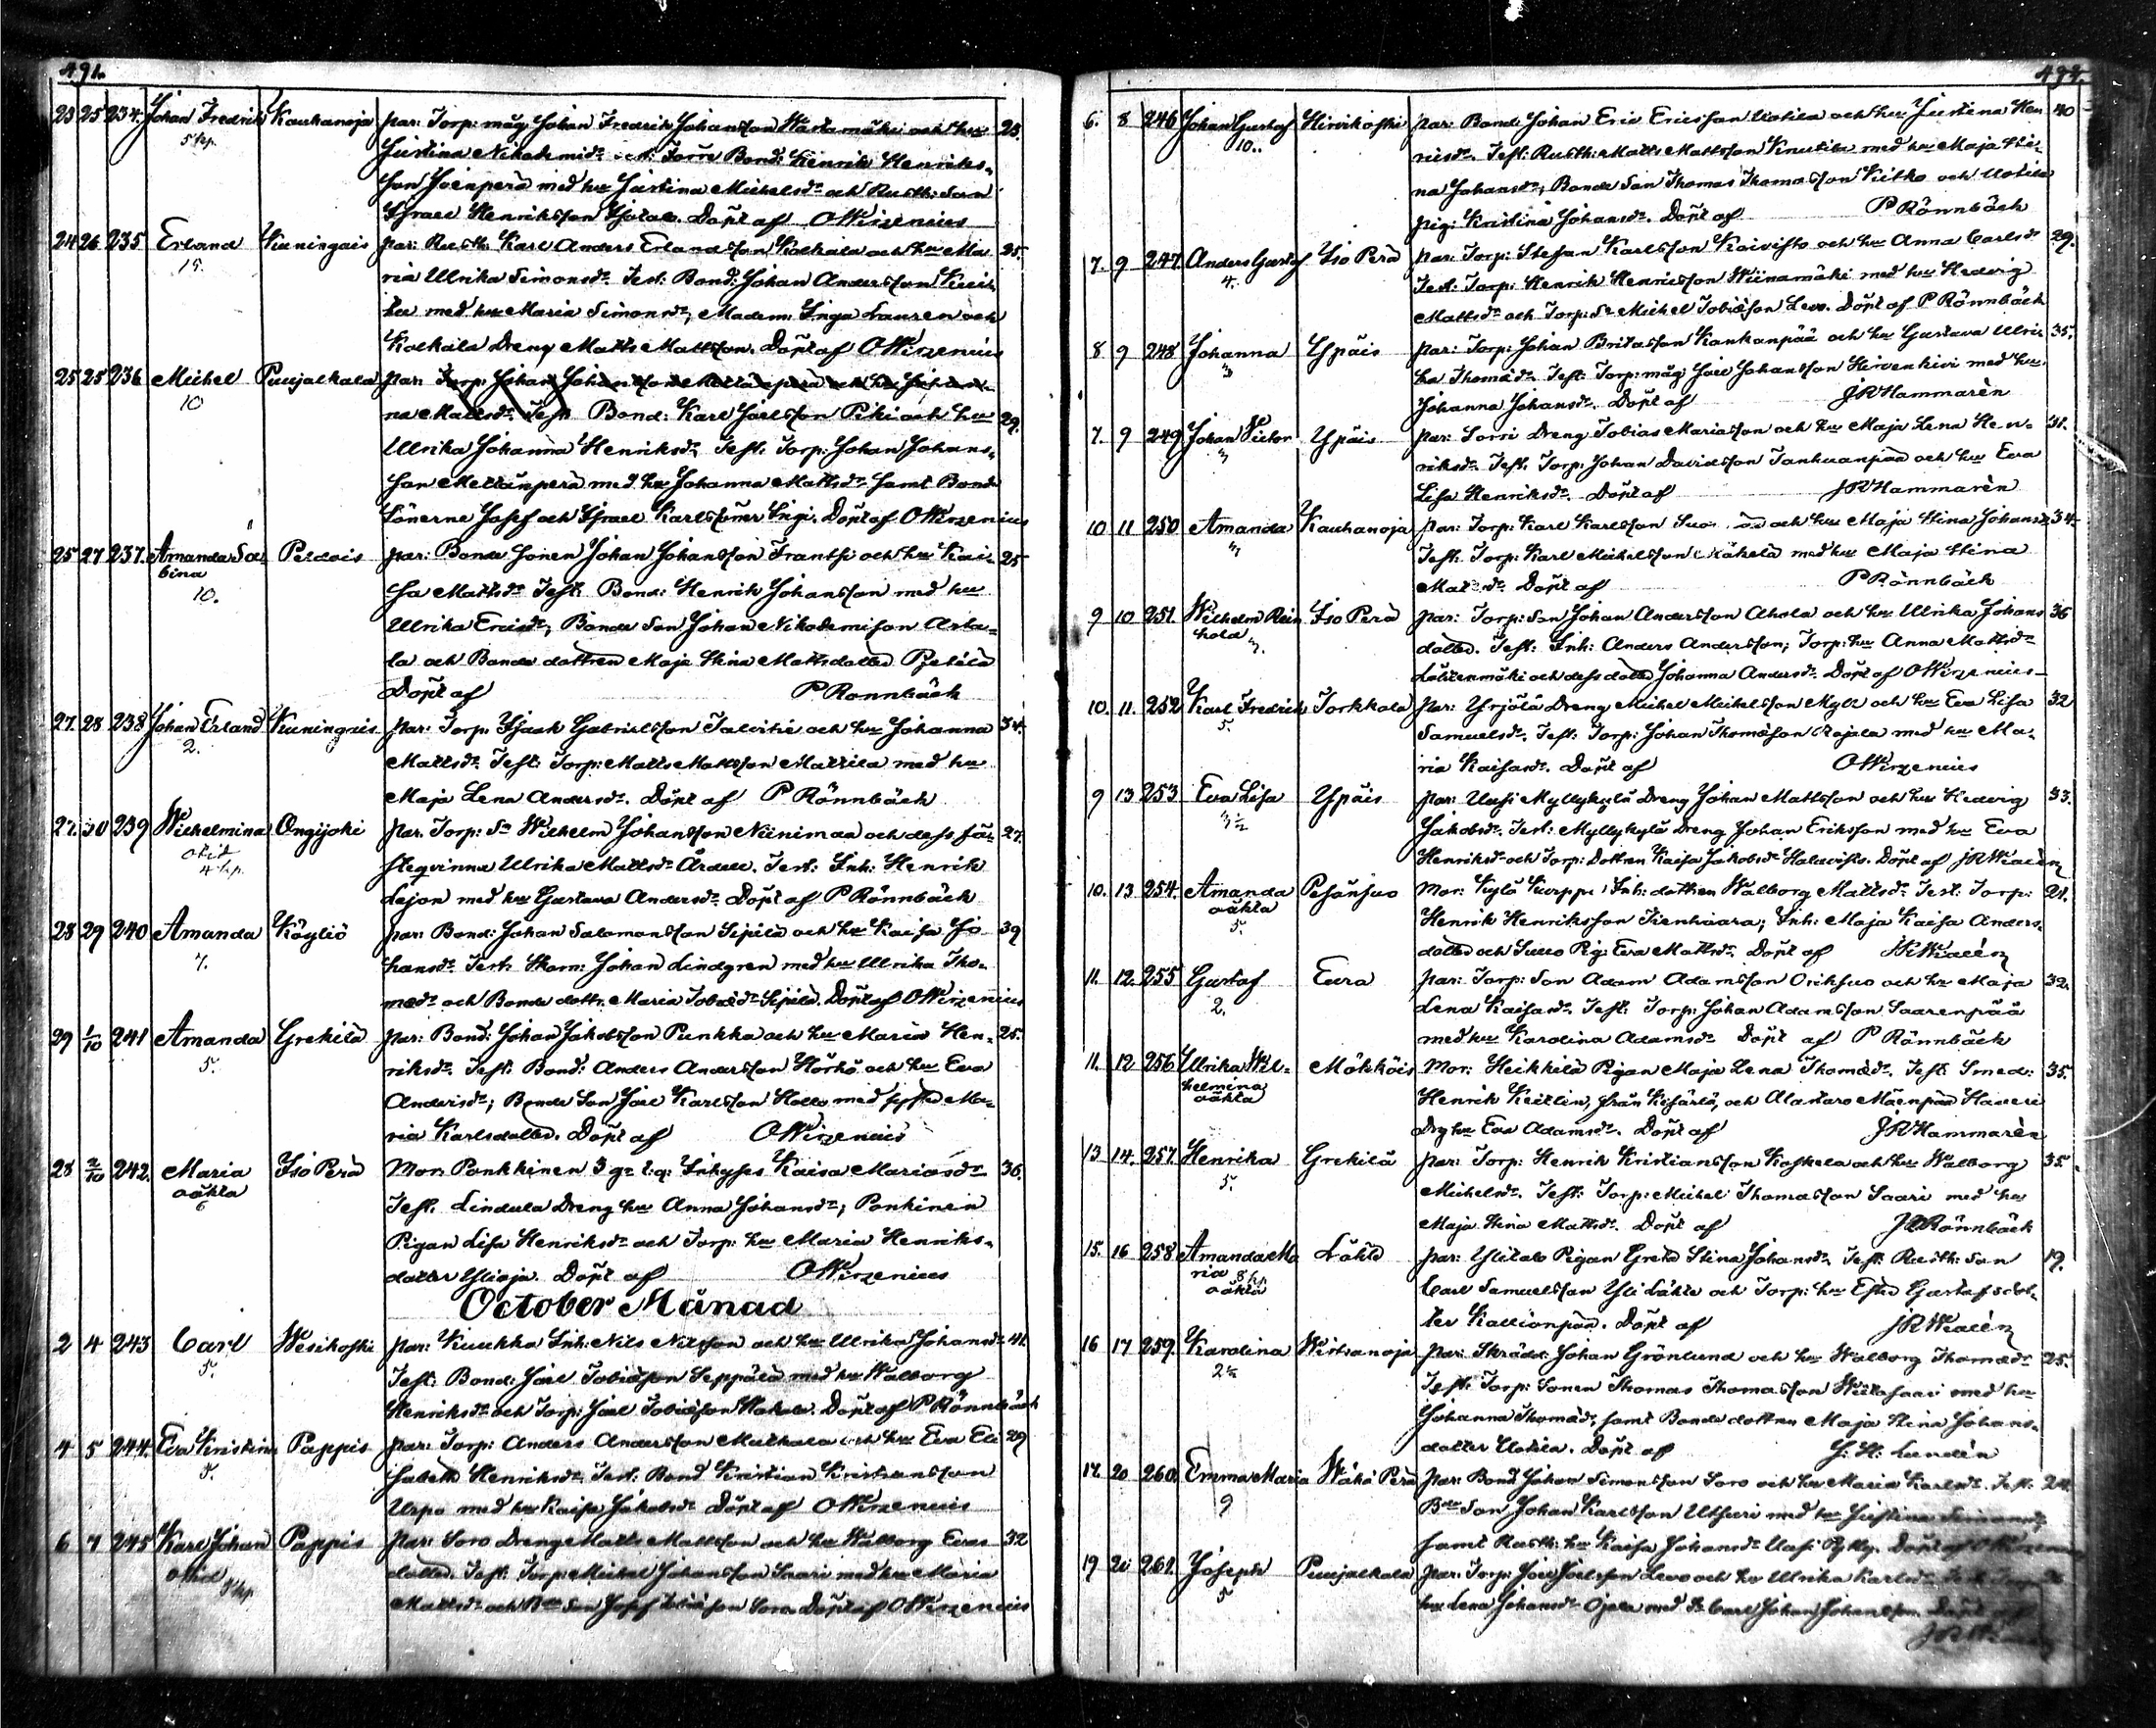 491.
23 25 234. Johan Fredrik Kauhanoja par: Torp: måg Johan Fredrik Johansson Wästamäki och hu 23.
5 kp. Justina Nikodemid: Torp Bond: Henrik Henriks-
son Joenperä med hu Justina Michelsd: och Rusth: Son
Israel Henriksson Döpt af OWirzenius
24 26 235 Erland Kuningais par: Rusth: Karl Anders Erlandsson Kolkala och hu Ma 25.
15. ria Ulrika Simonsd: Test: Bond: Johan Andersson
med hu Maria Simonsd:, Madem: Inga Lauren och
Kolkala Dreng Matts Mattsson. Döpt af OWirzenius
25 25 236 Michel Puujalkala par: Torp: Johan Johansson Mettänperä och hu Johan-
10 na Mattsd: Test: Bond: Karl Joelsson Piki och hu 29.
Ulrika Johanna Henriksd: Test: Torp: Johan Johans-
son Mettänperä med hu Johanna Mattsd: samt Bonde
Sönerne Josef och Israel Karlssöner Döpt af OWirzenius
25 27 237. Amanda Sa- Peldois par: Bonde Sonen Johan Johansson Frantsi och hu Kai- 25
bina sa Mattsd: Test: Bond: Henrik Johansson med hu
10. Ulrika Ericsd:, Bonde Son Johan Nikodemison Asta-
la och Bonde dottren Maja Stina Mattsdotter
Döpt af P Rönnbäck
27. 28 238 Johan Erland Kuningais par: Torp: Isaak Gabrielsson Talvitie och hu Johanna 34.
2. Mattsd: Test: Torp: Matts Mattsson Mattila med hu
Maja Lena Andersd:. Döpt af P Rönnbäck
27. 30 239 Wilhelmina Ongijoki par: Torp: Sn Wilhelm Johansson Niinimaa och dess fä- 27.
4 kp. stegvinna Ulrika Mattsd: Test: Inh: Henrik
Lejon med hu Gustava Andersd: Döpt af P Rönnbäck
28 29 240 Amanda Köyliö par: Bond: Johan Salomonsson Sipilä och hu Kaisa Jo- 39
7. hansd: Test: Skom: Johan Lindgren med hu Ulrika Tho-
masd: och Bonde dottr: Maria Tobiæd: Sipilä. Döpt af OWirzenius
29 1/10 241 Amanda Grekilä par: Bond: Johan Jakobsson Punkka och hu Maria Hen- 25.
5. riksd: Test: Bond: Anders Andersson Hörkö och hu Eva
Andersd:; Bonde Son Joel Karlsson Hollo med syster Ma-
ria Karlsdotter. Döpt af OWirzenius
28 2/10 242. Maria Iso Perä Mor: Ponkkinen Inhyses Kaisa Mariasd: 36.
oäkta Test: Lindula Dreng hu Anna Johansd:; Ponkinen
6 Pigan Lisa Henriksd: och Torp: hu Maria Henriks-
dotter Ylioja. Döpt af OWirzenius
October Månad
2 4 243 Carl Wesikoski par: Kuukka Inh: Nils Nilsson och hu Ulrika Johansd: 41.
5. Test: Bond: Joel Tobiæson Seppälä med hu Walborg
Henriksd: och Torp: Joel Tobiæson Döpt af P Rönnbäck
4 5 244. Eva Kristina Pappis par: Torp: Anders Andersson Multala och hu Eva Eli- 29
5. sabeth Henriksd: Test: Bond Kristian Kristiansson
Urpo med hu Kaisa Jakobsd: Döpt af OWirzenius
6 7 245 Karl Johan Pappis par: Soro Dreng Matts Mattsson och hu Walborg Evas 32
dotter. Test: Torp: Michel Johansson Saari med hu Maria
Mattsd: och Bde Son Josef Tobiæson Soro Döpt af OWirzenius
492.
6. 8 246 Johan Gustaf Hirvikoski par: Bond: Johan Eric Ericsson Uotila och hu Justina Hen- 40
10.. ricsd:. Test: Rusth: Matts Mattsson Knuutila med hu Maja Sti-
na Johansd:, Bonde Son Thomas Thomasson och Uotila
pig: Kristina Johansd: Döpt af P Rönnbäck
7. 9 247. Anders Gustaf Iso Perä par: Torp: Stefan Karlsson Koivisto och hu Anna Carlsd: 29.
4. Test: Torp: Henrik Henricsson Wiinamäki med hu Hedvig
Mattsd: och Torp: Sn Michel Tobiæson Levo. Döpt af P Rönnbäck
8 9 248 Johanna Ypäis par: Torp: Johan Britasson Kankanpää och hu Gustava Ulri- 35.
3 ka Thomæd:. Test: Torp: måg Joel Johansson Hirvenkivi med hu
Johanna Johansd:. Döpt af JRHammarèn
7. 9 249 Johan Victor Ypäis par: Sorri Dreng Tobias Mariasson och hu Maja Lena Hen- 31.
3 riksd: Test: Torp: Johan Davidsson Tanhuanpää och hu Eva
Lisa Henriksd:. Döpt af JRHammarèn
10 11 250 Amanda Kauhanoja par: Torp: Karl Karlsson och hu Maja Stina Johansd: 34
3 Test: Torp: Karl Michelsson med hu Maja Stina
Matsd: Döpt af P Rönnbäck
9 10 251. Wilhelm Rein Iso Perä par: Torp: Son Johan Andersson Ahola och hu Ulrika Johans 36
hold dotter. Test: Inh: Anders Andersson; Torp: hu Anna Mattsd:
3. och dess dotter Johanna Andersd: Döpt af OWirzenius
10. 11. 252 Karl Fredrick Torkkala par: Yrjölä Dreng Michel Michelsson Myll och hu Eva Lisa 32
5. Samuelsd: Test: Torp: Johan Thomæson Rajala med hu Ma-
ria Kaisasd:. Döpt af OWirzenius
9 13 253 Eva Lisa Ypäis par: Uusi Myllykylä Dreng Johan Mattsson och hu Hedvig 33.
3 1/2 Jakobsd:. Test: Myllykylä Dreng Johan Eriksson med hu Eva
Henriksd: och Torp: Dottren Kaisa Jakobsd: Döpt af JRWialèn
10. 13 254. Amanda Pesänsuo Mor: Kylä Kurppa Inh: dottren Walborg Mattsd: Test: Torp: 21.
oäkta Henrik Henriksson; Inh: Maja Kaisa Anders-
5. dotter och Pig: Eva Mattsd: Döpt af JRWialèn
11. 12. 255 Gustaf Eura par: Torp: Son Adam Adamsson Oriksuo och hu Maja 32.
2. Lena Kaisasd:. Test: Torp: Johan Adamsson Saarenpää
med hu Karolina Adamsd: Döpt af P Rönnbäck
11. 12 256 Ulrika Wil- Mölsköis Mor: Heikkilä Pigan Maja Lena Thomæd:. Test: Smed: 35.
helmina Henrik Keitlin, från Kihärlä, och Alastaro Mäenpää
oäkta Drg hu Eva Adamsd:. Döpt af JRHammarèn
13 14. 257. Henrika Grekilä par: Torp: Henrik Kristiansson Koskela och hu Walborg 35.
5. Michelsd:. Test: Torp: Michel Thomasson Saari med hu
Maja Stina Mattsd: Döpt af Rönnbäck
15. 16 258 Amanda Ma Lähte par: Ylitalo Pigan Greta Stina Johansd: Test: Rusth: Son 19.
ria 8 kp. Carl Samuelsson Yli Lähte och Torp: hu Ester Gustafsdot-
oäkta ter Kallionpää. Döpt af JRWialèn
16 17 259. Karolina Wirtsanoja par: Skrädd: Johan Grönlund och hu Walborg Thomæd: 25.
2 1/2 Test: Torp: Sonen Thomas Thomasson med hu
Johanna Thomæd:, samt Bonde dottren Maja Stina Johans-
dotter Uotila. Döpt af J. H. Lundèn
17. 20 260. Emma Maria Wähä Perä par: Bond Johan Simonsson Soro och hu Maria Karlsd: Test: 24.
9 Bde Son Johan Karlsson Utsuri med hu Justina
samt Rusth: hu Kaisa Johansd: Döpt af
19 20 261. Joseph Puujalkala par: Torp: Joel Joelsson Levo och hu Ulrika Karlsd:
5 hu Lena Johansd: Ojala med Carl Johan Johansson Döpt